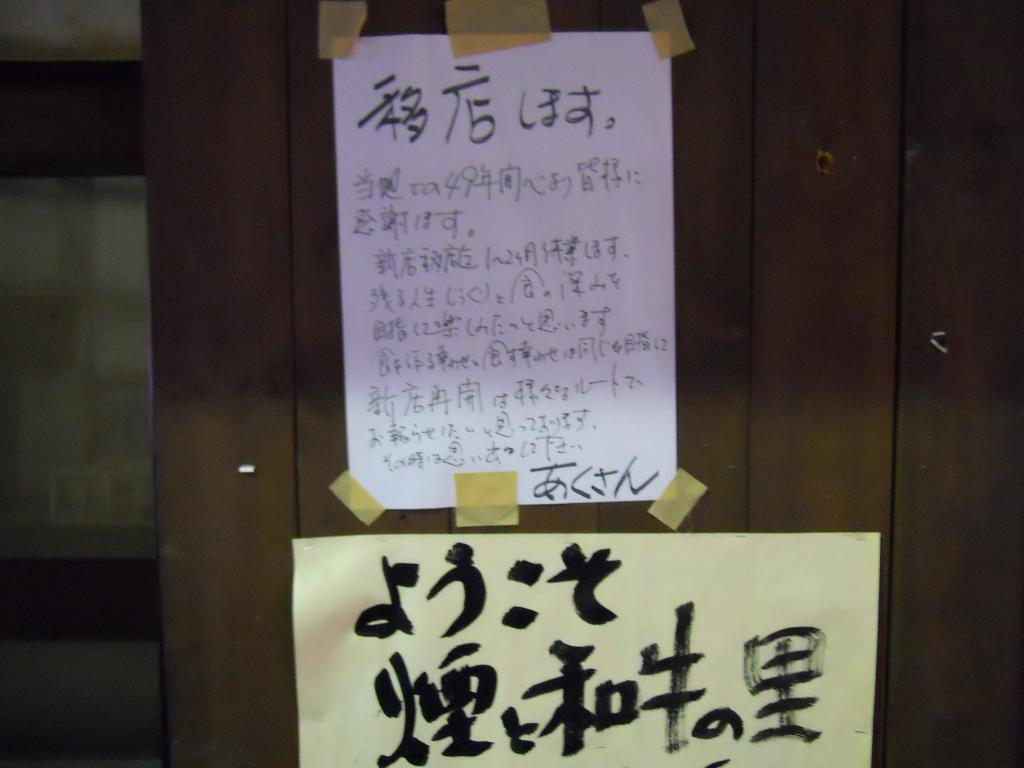 移店します。
当地での49年間心より皆様に
感謝します。
新店移店迄1~2ヶ月休業します。
残る人生じっくりと食の深みを
目指して楽しみたいと思います
食を作る幸せ、食す幸せは同じを目指して
新店再開は様々なルートで、
お知らせしたいと思っております。
その時は思い出して下さい
あくさん
ようこそ
煙と和牛の里